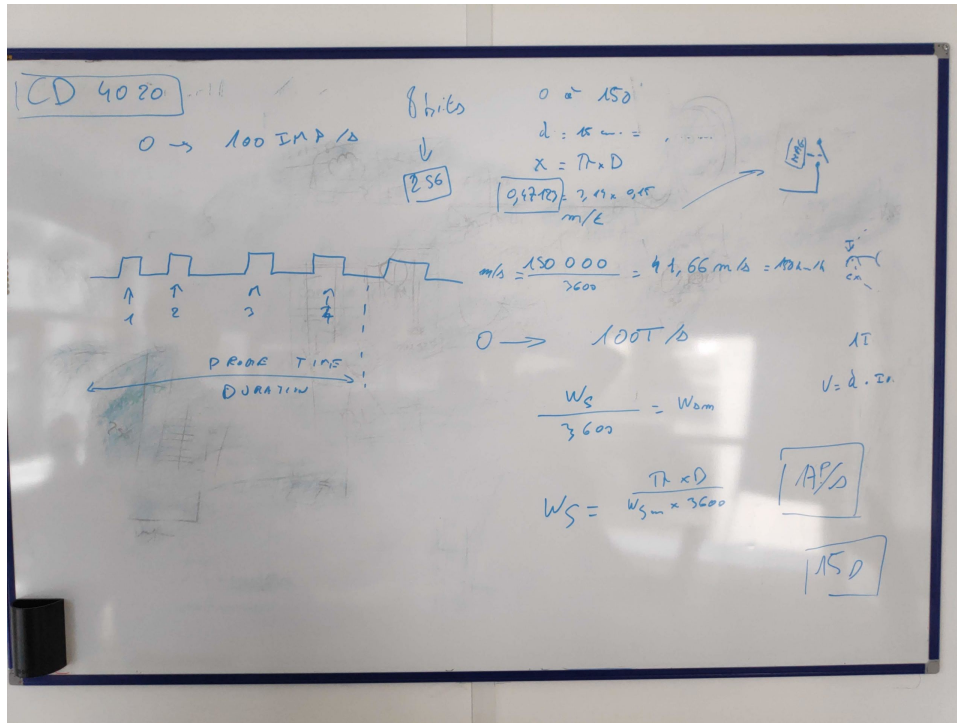 CD 4020
0 → 100 IMP/s
8 bits
↓
256
0 à 150
d = 15 cm. = ......
X = π x D
0,47123 = 3,14 x 0,15
m/t
m/s = 150 000 / 3600 = 41,66 m/s = 150 km/h
1 2 3 4
PROBE TIME
DURATION
0 → 100T/s
1I
WS / 3,600 = Wsm
WS = π x D / WSm x 3600
1AP/s
15D